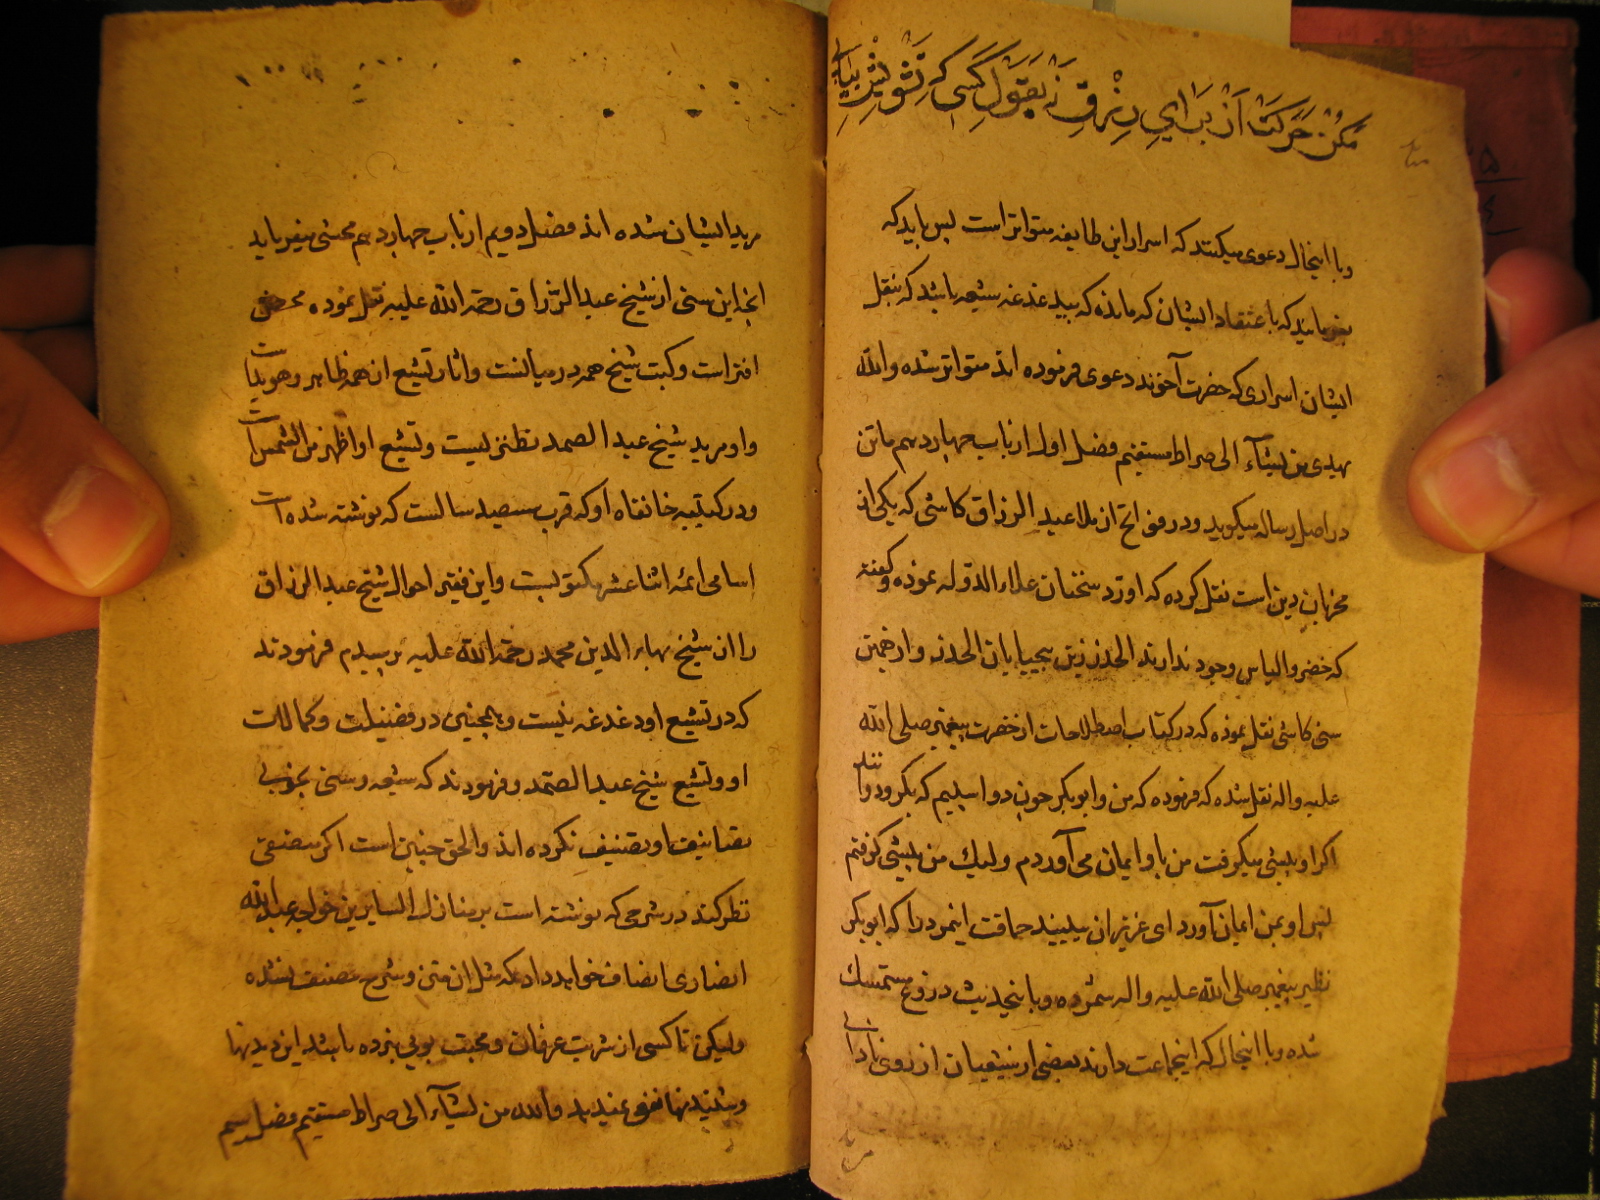 مکن حرکت از برای رزق نه بقول کسی که تشویش
وبا اینحال دعوی میکنند که اسرار این طایفه متواتر است پس باید که
بفرمایند که با عتقاد ایشان که مانده که بیدغدغه شیعه باشد که بنقل
ایشان اسراری که حضرت آخوند دعوی فرموده اند متواتر شده والله
یهدی من یشآء الی صراط مستقیم فصل اول از باب چهاردهم ماتن
در اصل رساله میکوید ودر وفی الح از ملا عبد الرزاق کاشی که یکی از
مخربان دین است نقل کرده که او رد سخنان علاء الدوله نموده وکفته
که خضر والیاس وجود ندارند الحذر زین بیحیایان الحذر وازهمین
سنی کاشی نقل نموده که در کتاب اصطلاحات از حضرت پیغمبر صلی الله
علیه واله نقل شده که فرموده که من وابوبکر چون دو اسبیم که بکرو دوانند
اکر او پیشی میکرفت من باو ایمان می آوردم ولیک من پیشی کرفتم
پس او بمن ایمان آورد ای عزیزان ببینید حماقت اینمرد را که ابوبکر
نظیر پیغمبر صلی الله علیه واله شمرده وباینحدیث دروغ متمسک
شده وبا اینحال که اینجماعت دارند بعضی از شیعیان از روی نادانی
مرید
مرید ایشان شده اند فصل دویم از باب چهاردهم محشی میفرماید
انچه این سنی از شیخ عبد الرزاق رحمة الله علیه نقل نموده محض
افتراست وکتب شیخ همه در میانست واثار تشیع از همه ظاهر وهویداست
واو مرید شیخ عبد الصمد نطنزیست وتشیع او اظهر من الشمس است
ودر کتیبه خانقاه او که قرب سیصد سالست که نوشته شده است
اسامی ائمه اثنا عشر مکتوبست واین فقیر احوال شیخ عبد الرزاق
را از شیخ بهاء الدین محمد رحمة الله علیه پرسیدم فرمودند
که در تشیع او دغدغه نیست وهمچنین در فضیلت وکمالات
او وتشیع شیخ عبد الصمد وفرمودند که شیعه وسنی بخوبی
تصانیف او تصنیف نکرده اند والحق چنین است اکر منصفی
نظر کند در شرحی که نوشته است بر منازل السایرین خواجه عبد الله
انصاری انصاف خواهد داد که مثل ان متن وشرح تصنیف نشده
ولیکن تا کسی از شربت عرفان ومحبت بویی نبرده باشد این دیدنها
وشنیدنها نفعی نمیدهد والله من یشآء الی صراط مستقیم فصل سیم